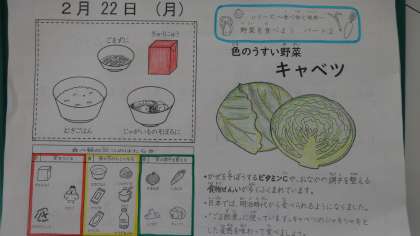 2月 22日 (月)
ごまずに
ぎゅうにゅう
むぎごはん
じゃがいものそぼろに
野菜を食べよう パート2
色のうすい野菜
キャベツ
・かぜをそぼうするビタミンCや、おなかの調子を整える
食物せんいが多くふくまれています。
・日本では、明治時代から食べられるようになりました。
キャベツのシャキシャキと
した食感を味わって食べましょう。